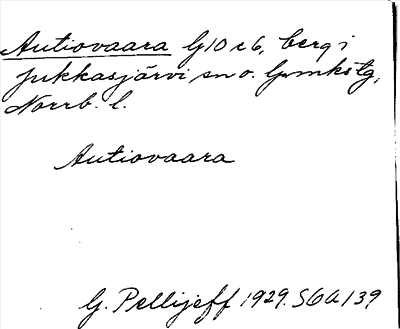 Autiovaara G10 c6, berg i
Jukkasjärvi sn o. lpmkstg,
Norrb. l.
Autiovaara
G. Pellijeff 1929. SOA 139